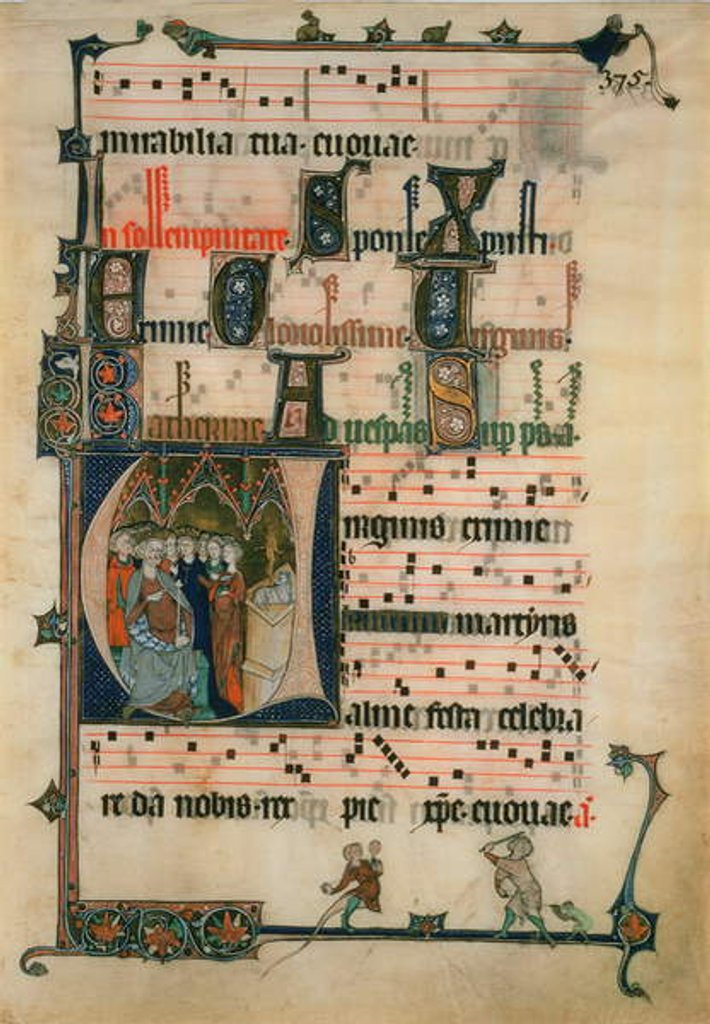 375
mirabilia tua. euouae.
In sollempnitate. Sponse Xpisti.
Eximie. Gloriosissime. Virginis.
Katherine. Ad vespas sup psa.
Virginis eximie
martyris
alme festa celebra
re da nobis. rex pie xpe. euouae. a.